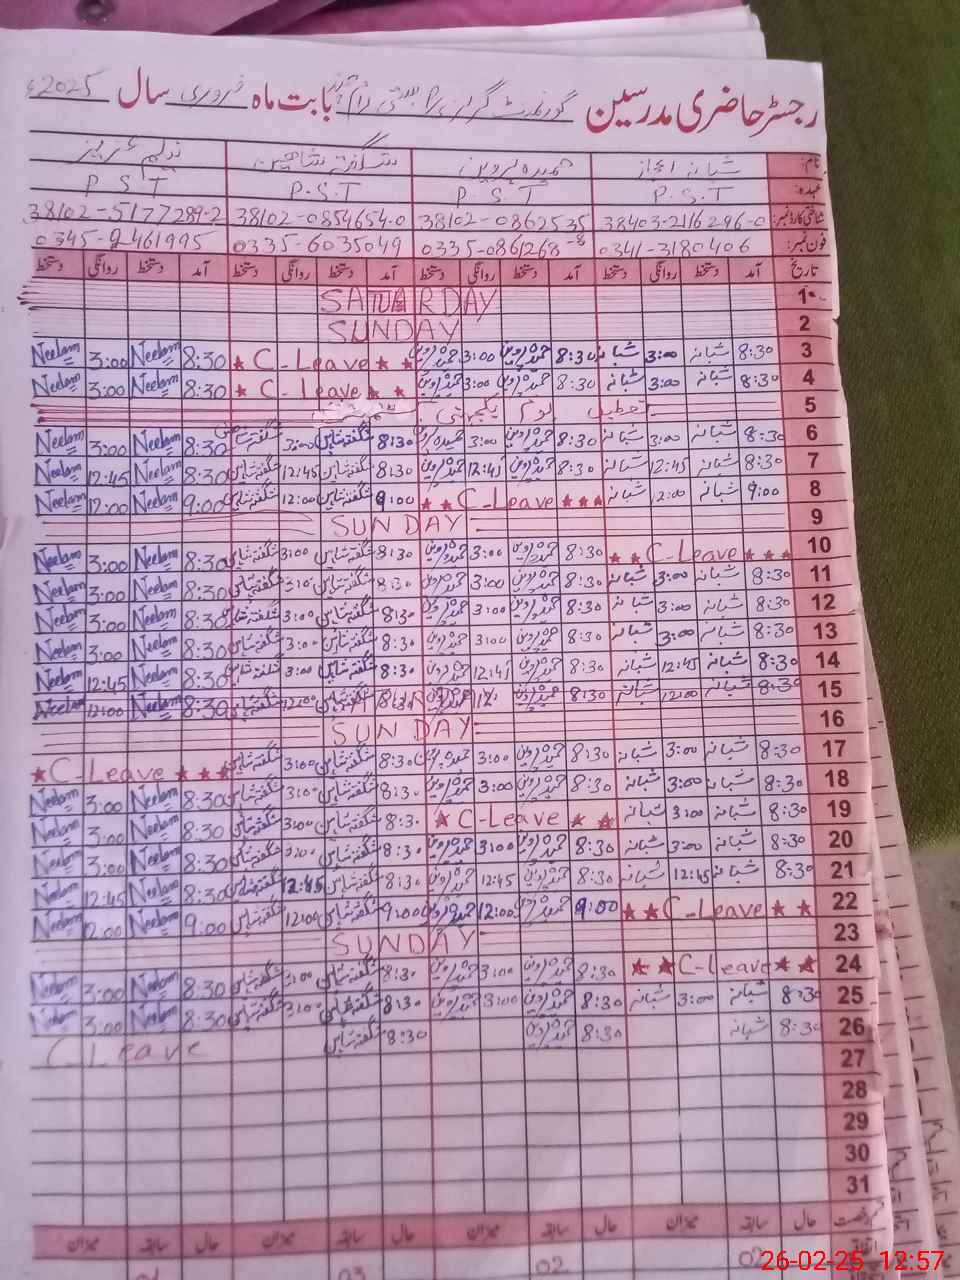 رجسٹر حاضری مدرسین گورنمنٹ گرلز بابت ماہ فروری سال 2025ء
نام: شبانہ اعجاز حمیدہ پروین شگفتہ شاہین نیلم عزیز
عہدہ: P.S.T P.S.T P.S.T P.S.T
شناختی کارڈ نمبر: 38403-2116296-0 38102-0862535 38102-0854654-0 38102-5177289-2
فون نمبر: 0341-3180406 0335-0861268 0335-6035049 0345-9461995
تاریخ آمد دستخط روانگی دستخط آمد دستخط روانگی دستخط آمد دستخط روانگی دستخط آمد دستخط روانگی دستخط
1 SATUARDAY
2 SUNDAY
3 8:30 شبانہ 3:00 شبانہ 8:30 حمیدہ پروین 3:00 حمیدہ پروین C-Leave 8:30 Neelam 3:00 Neelam
4 8:30 شبانہ 3:00 شبانہ 8:30 حمیدہ پروین 3:00 حمیدہ پروین C-Leave 8:30 Neelam 3:00 Neelam
5 تعطیل یوم یکجہتی
6 8:30 شبانہ 3:00 شبانہ 8:30 حمیدہ پروین 3:00 حمیدہ پروین 8:30 شگفتہ شاہین 3:00 شگفتہ شاہین 8:30 Neelam 3:00 Neelam
7 8:30 شبانہ 12:45 شبانہ 8:30 حمیدہ پروین 12:45 حمیدہ پروین 8:30 شگفتہ شاہین 12:45 شگفتہ شاہین 8:30 Neelam 12:45 Neelam
8 9:00 شبانہ 12:00 شبانہ C-Leave 9:00 شگفتہ شاہین 12:00 شگفتہ شاہین 9:00 Neelam 12:00 Neelam
9 SUNDAY
10 C-Leave 8:30 حمیدہ پروین 3:00 حمیدہ پروین 8:30 شگفتہ شاہین 3:00 شگفتہ شاہین 8:30 Neelam 3:00 Neelam
11 8:30 شبانہ 3:00 شبانہ 8:30 حمیدہ پروین 3:00 حمیدہ پروین 8:30 شگفتہ شاہین 3:00 شگفتہ شاہین 8:30 Neelam 3:00 Neelam
12 8:30 شبانہ 3:00 شبانہ 8:30 حمیدہ پروین 3:00 حمیدہ پروین 8:30 شگفتہ شاہین 3:00 شگفتہ شاہین 8:30 Neelam 3:00 Neelam
13 8:30 شبانہ 3:00 شبانہ 8:30 حمیدہ پروین 3:00 حمیدہ پروین 8:30 شگفتہ شاہین 3:00 شگفتہ شاہین 8:30 Neelam 3:00 Neelam
14 8:30 شبانہ 12:45 شبانہ 8:30 حمیدہ پروین 12:45 حمیدہ پروین 8:30 شگفتہ شاہین 3:00 شگفتہ شاہین 8:30 Neelam 12:45 Neelam
15 8:30 شبانہ 12:00 شبانہ 8:30 حمیدہ پروین حمیدہ پروین 8:30 شگفتہ شاہین 12:00 شگفتہ شاہین 8:30 Neelam 12:00 Neelam
16 SUNDAY
17 8:30 شبانہ 3:00 شبانہ 8:30 حمیدہ پروین 3:00 حمیدہ پروین 8:30 شگفتہ شاہین 3:00 شگفتہ شاہین C-Leave
18 8:30 شبانہ 3:00 شبانہ 8:30 حمیدہ پروین 3:00 حمیدہ پروین 8:30 شگفتہ شاہین 3:00 شگفتہ شاہین 8:30 Neelam 3:00 Neelam
19 8:30 شبانہ 3:00 شبانہ C-Leave 8:30 شگفتہ شاہین 3:00 شگفتہ شاہین 8:30 Neelam 3:00 Neelam
20 8:30 شبانہ 3:00 شبانہ 8:30 حمیدہ پروین 3:00 حمیدہ پروین 8:30 شگفتہ شاہین 3:00 شگفتہ شاہین 8:30 Neelam 3:00 Neelam
21 8:30 شبانہ 12:45 شبانہ 8:30 حمیدہ پروین 12:45 حمیدہ پروین 8:30 شگفتہ شاہین 12:45 شگفتہ شاہین 8:30 Neelam 12:45 Neelam
22 C-Leave 9:00 حمیدہ پروین 12:00 حمیدہ پروین 9:00 شگفتہ شاہین 12:00 شگفتہ شاہین 9:00 Neelam 12:00 Neelam
23 SUNDAY
24 C-Leave 8:30 حمیدہ پروین 3:00 حمیدہ پروین 8:30 شگفتہ شاہین 3:00 شگفتہ شاہین 8:30 Neelam 3:00 Neelam
25 8:30 شبانہ 3:00 شبانہ 8:30 حمیدہ پروین 3:00 حمیدہ پروین 8:30 شگفتہ شاہین 3:00 شگفتہ شاہین 8:30 Neelam 3:00 Neelam
26 8:30 شبانہ 8:30 حمیدہ پروین 8:30 شگفتہ شاہین C Leave
27
28
29
30
31
رخصت حال سابقہ میزان حال سابقہ میزان حال سابقہ میزان حال سابقہ میزان
02 02 03 01
26-02-25 12:57